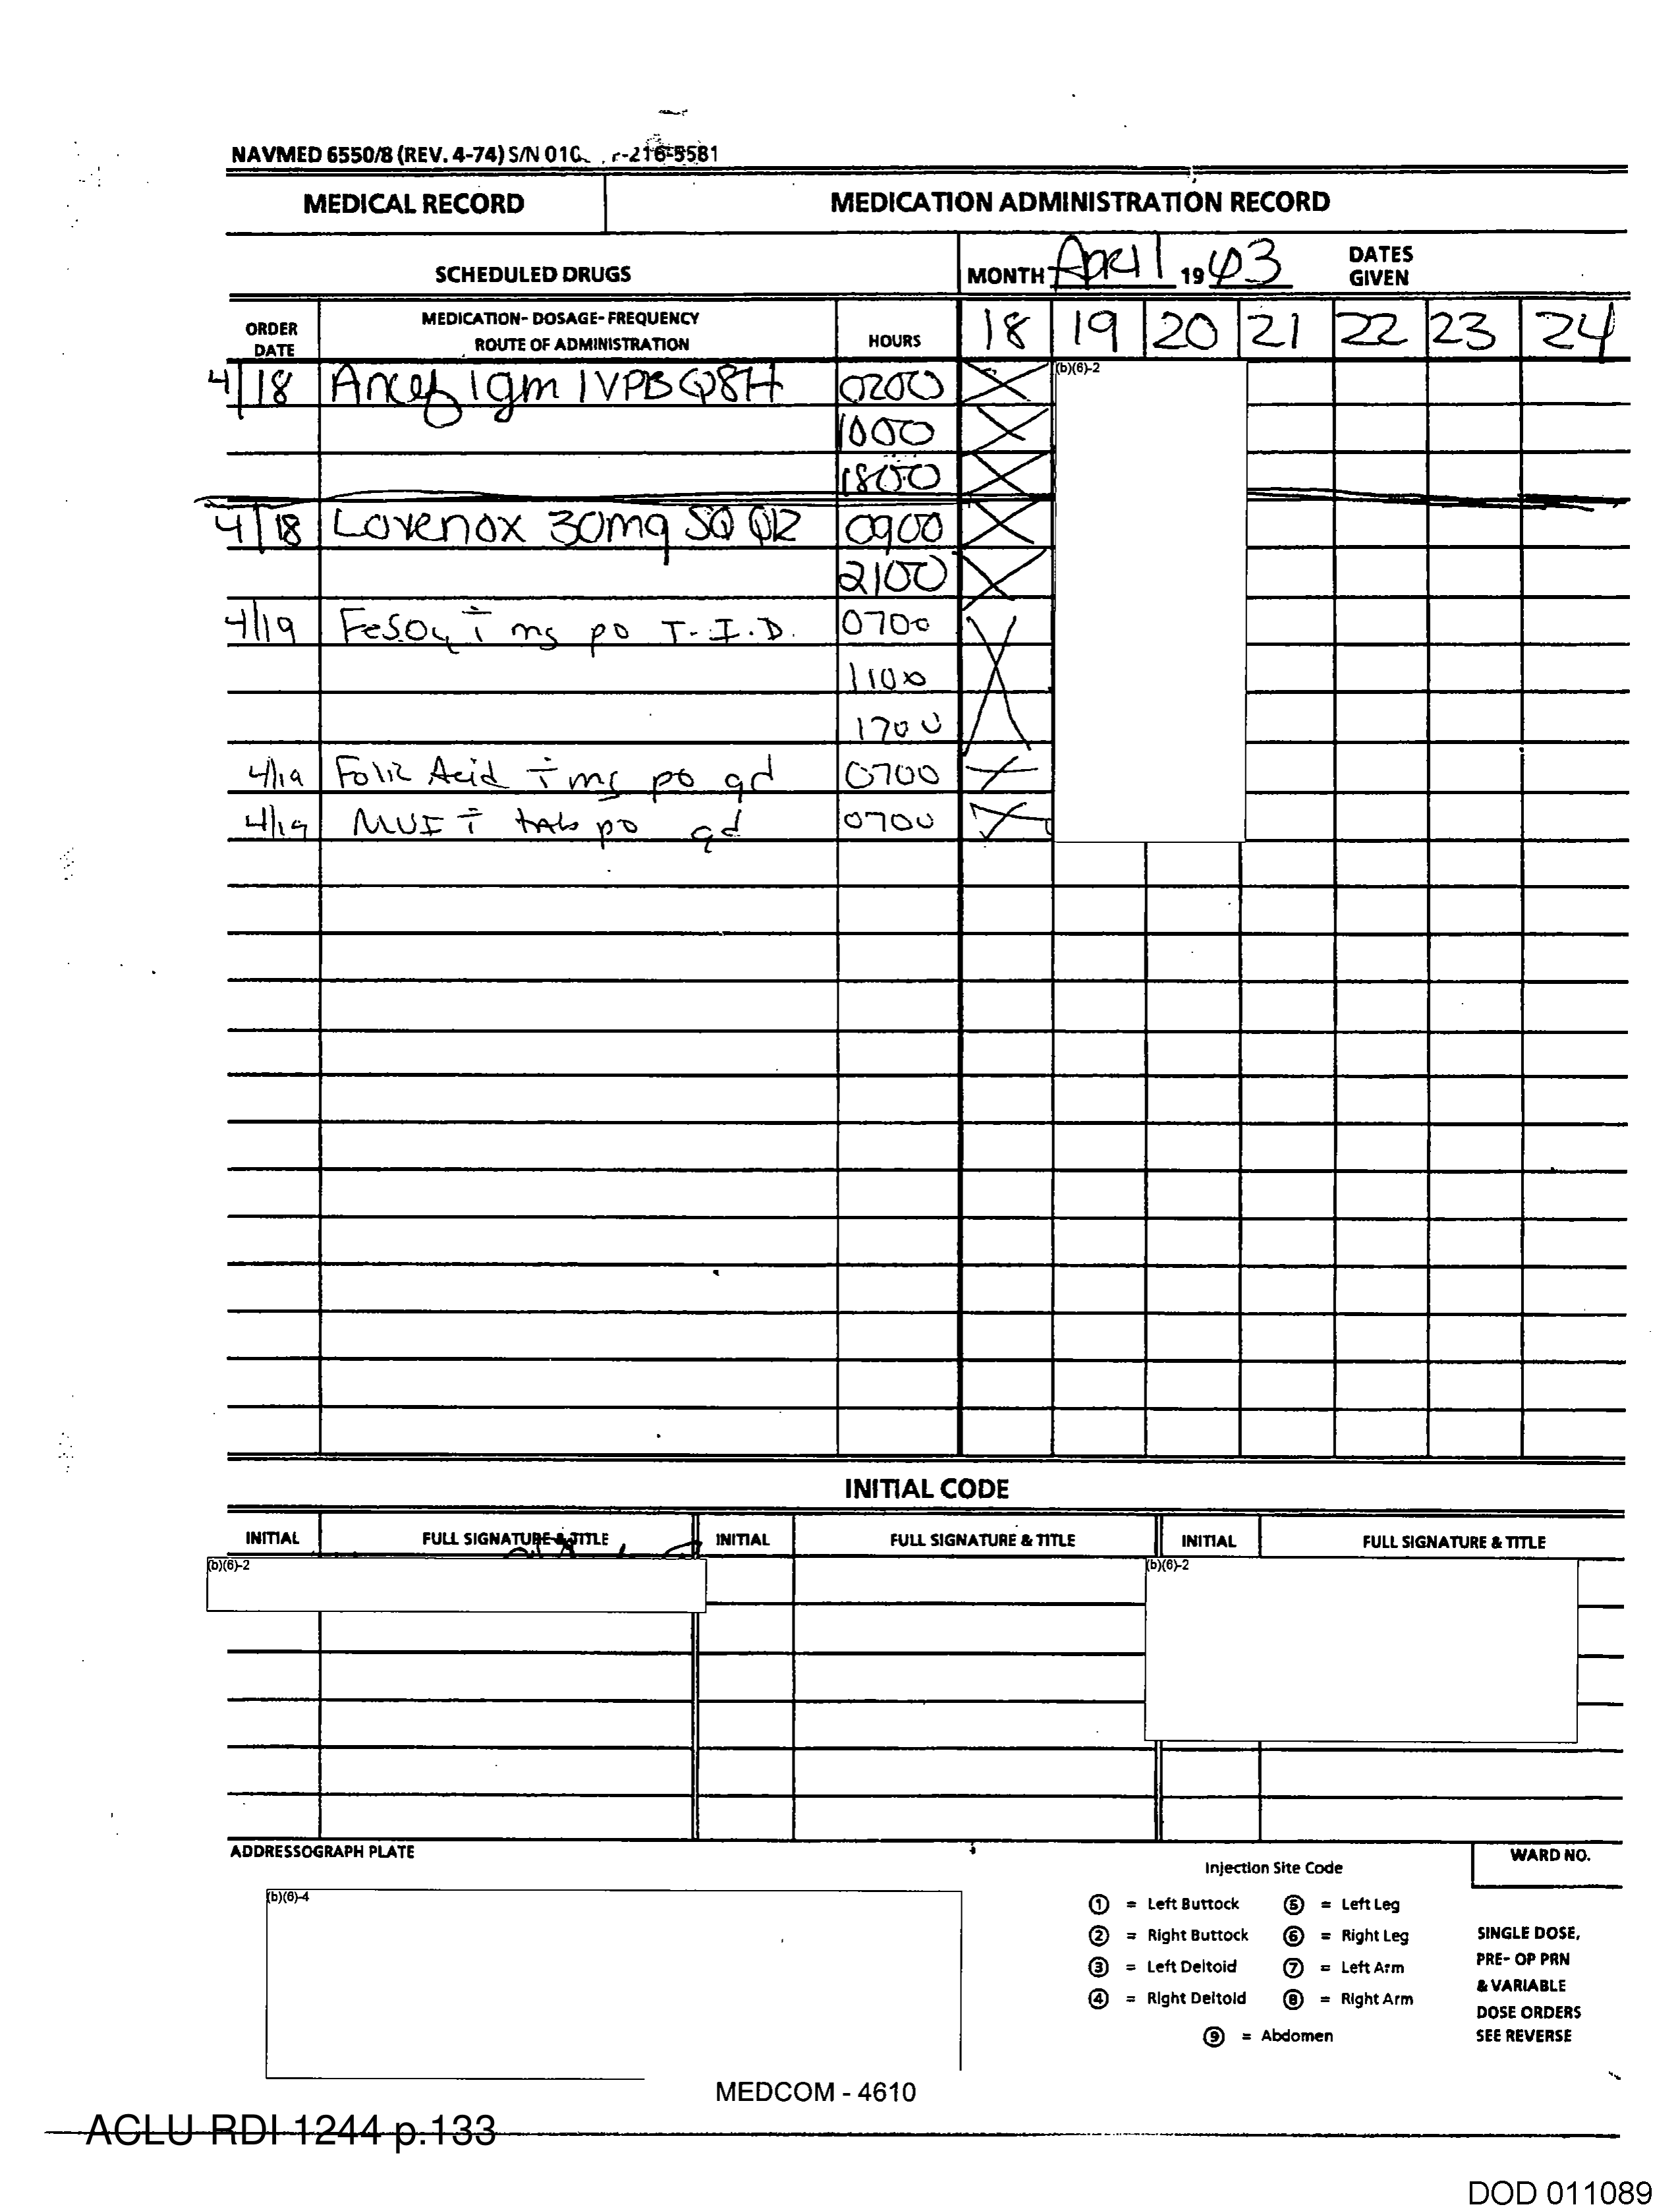 NAVMED 6550/8 (REV. 4-74) S/N 010 -216-5581
MEDICAL RECORD MEDICATION ADMINISTRATION RECORD
SCHEDULED DRUGS MONTH April 19 03 DATES GIVEN
ORDER DATE MEDICATION- DOSAGE- FREQUENCY ROUTE OF ADMINISTRATION HOURS 18 19 20 21 22 23 24
4/18 Ancef 1gm IVPB Q8H 0200 (b)(6)-2
1000
1800
4/18 Lovenox 30mg SQ Q12 0900
2100
4/19 FeSO4 ī mg po T.I.D. 0700
1100
1700
4/19 Folic Acid ī mg po qd 0700
4/19 MVI ī tab po qd 0700
INITIAL CODE
INITIAL FULL SIGNATURE & TITLE INITIAL FULL SIGNATURE & TITLE INITIAL FULL SIGNATURE & TITLE
(b)(6)-2 (b)(6)-2
ADDRESSOGRAPH PLATE
(b)(6)-4
Injection Site Code
① = Left Buttock ⑤ = Left Leg
② = Right Buttock ⑥ = Right Leg
③ = Left Deltoid ⑦ = Left Arm
④ = Right Deltoid ⑧ = Right Arm
⑨ = Abdomen
WARD NO.
SINGLE DOSE,
PRE- OP PRN
& VARIABLE
DOSE ORDERS
SEE REVERSE
MEDCOM - 4610
ACLU RDI 1244 p.133
DOD 011089